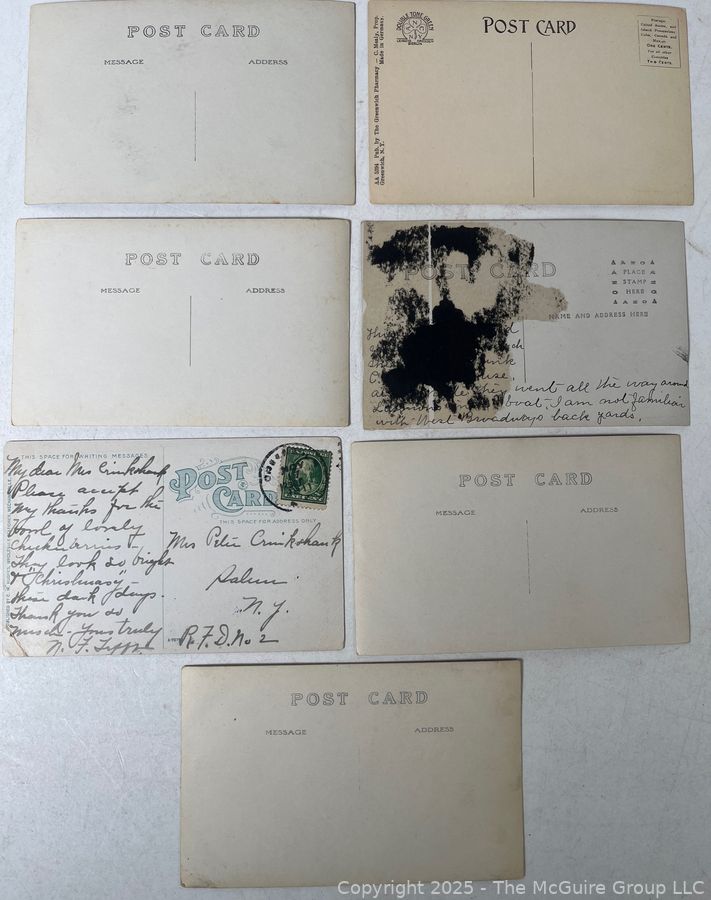 POST CARD
MESSAGE
ADDERSS
AA 5094 Pub. by The Greenwich Pharmacy - C. Mealy, Prop.
Greenwich, N. Y.
Made in Germany.
DOUBLE TONE GREEN
BERLIN
POST CARD
Postage:
United States, and
Island Possessions
Cuba, Canada and
Mexico
One Cent.
For all other
Countries
Two Cents.
POST CARD
MESSAGE
ADDRESS
POST CARD
PLACE
STAMP
HERE
NAME AND ADDRESS HERE
they went all the way around
boat, I am not familiar
with West Broadways back yards.
THIS SPACE FOR WRITING MESSAGES
POST CARD
THIS SPACE FOR ADDRESS ONLY
My dear Mrs Cruikshank
Please accept
my thanks for the
bowl of lovely
checkerberries -
They look so bright
& "Christmasy"
these dark days.
Thank you so
much - Yours truly
N. F.
Mrs Peter Cruikshank
Salem
N. Y.
R. F. D. No 2
POST CARD
MESSAGE
ADDRESS
POST CARD
MESSAGE
ADDRESS
Copyright 2025 - The McGuire Group LLC